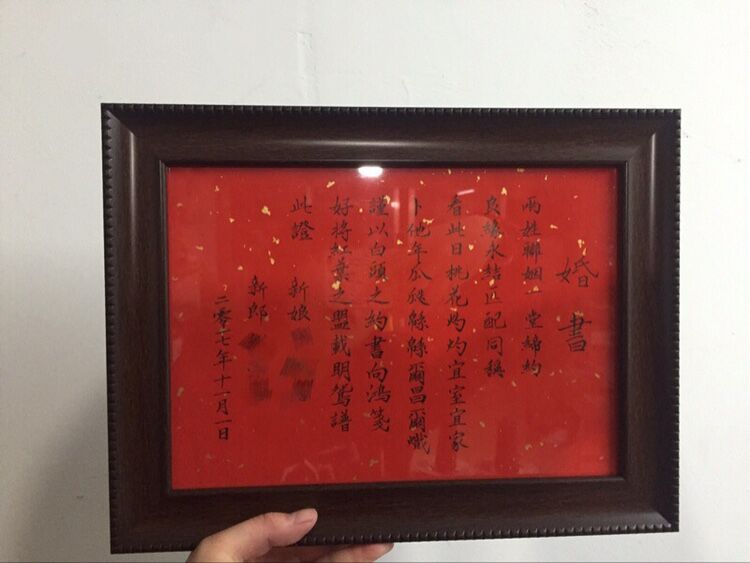 婚書
兩姓聯姻一堂締約
良緣永結匹配同稱
看此日桃花灼灼宜室宜家
卜他年瓜瓞緜緜爾昌爾熾
謹以白頭之約書向鴻箋
好將紅葉之盟載明鴛譜
此證
新娘
新郎
二零一七年十一月一日